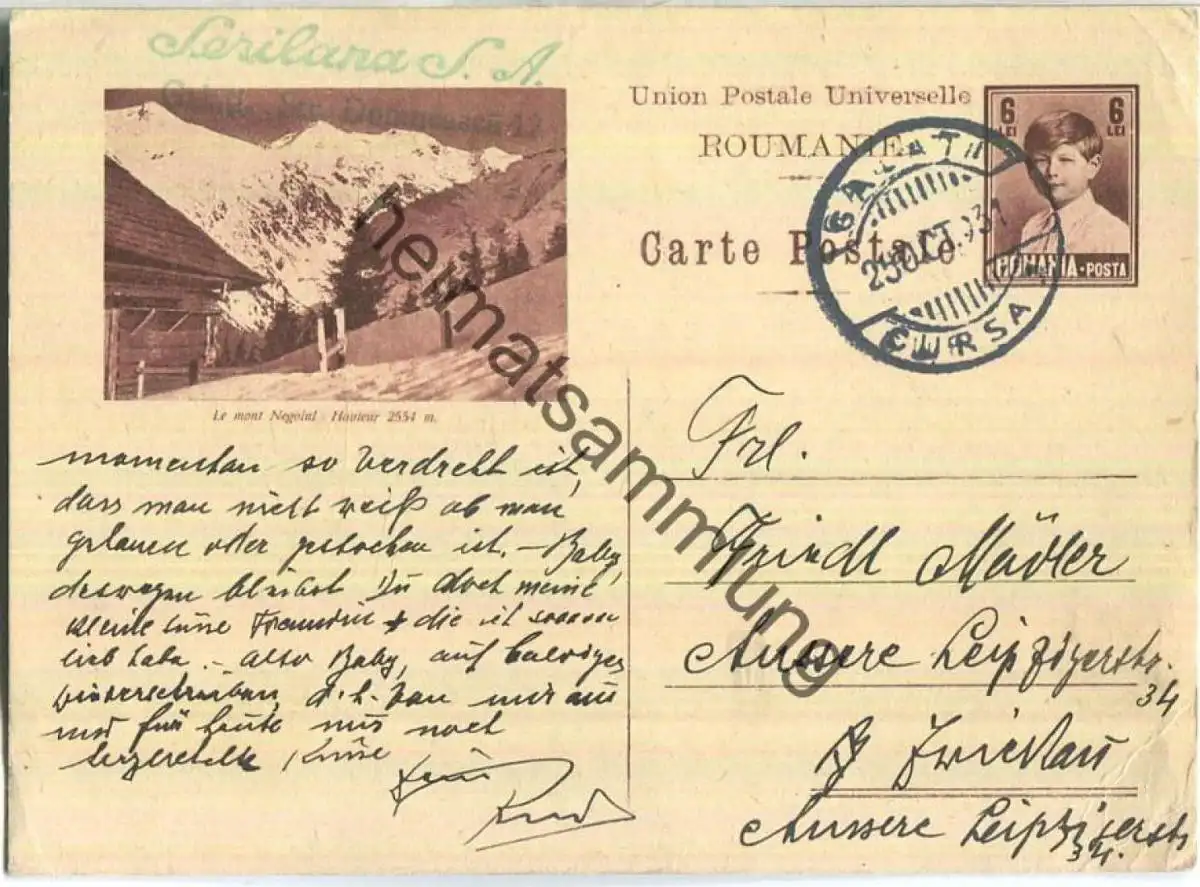 Serilana S. A.
Galați, Str. Domnească 12
Union Postale Universelle
ROUMANIE
Carte Postale
6 LEI 6 LEI
ROMANIA - POSTA
GALATI
25 OCT. 931
CURSA
Le mont Negoiul Hauteur 2554 m.
momentan so verdreht ist,
dass man nicht weiß ob man
gehauen oder gestochen ist. – Baby,
deswegen bleibst Du doch meine
kleine süsse Freundin die ich sooooo
lieb habe. – Also Baby, auf baldiges
wiederschreiben, d. h. von mir aus
und für heute nur noch
herzenstelle Küsse
Dein
Rud
Frl.
Friedl Mädler
Aussere Leipzigerstr.
34
Zwickau
Aussere Leipzigerstr
34.
heimatsammlung